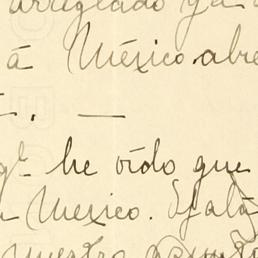 arreglado ya
á México abre
he oído que
Mexico. Ojalá
nuestro asunto